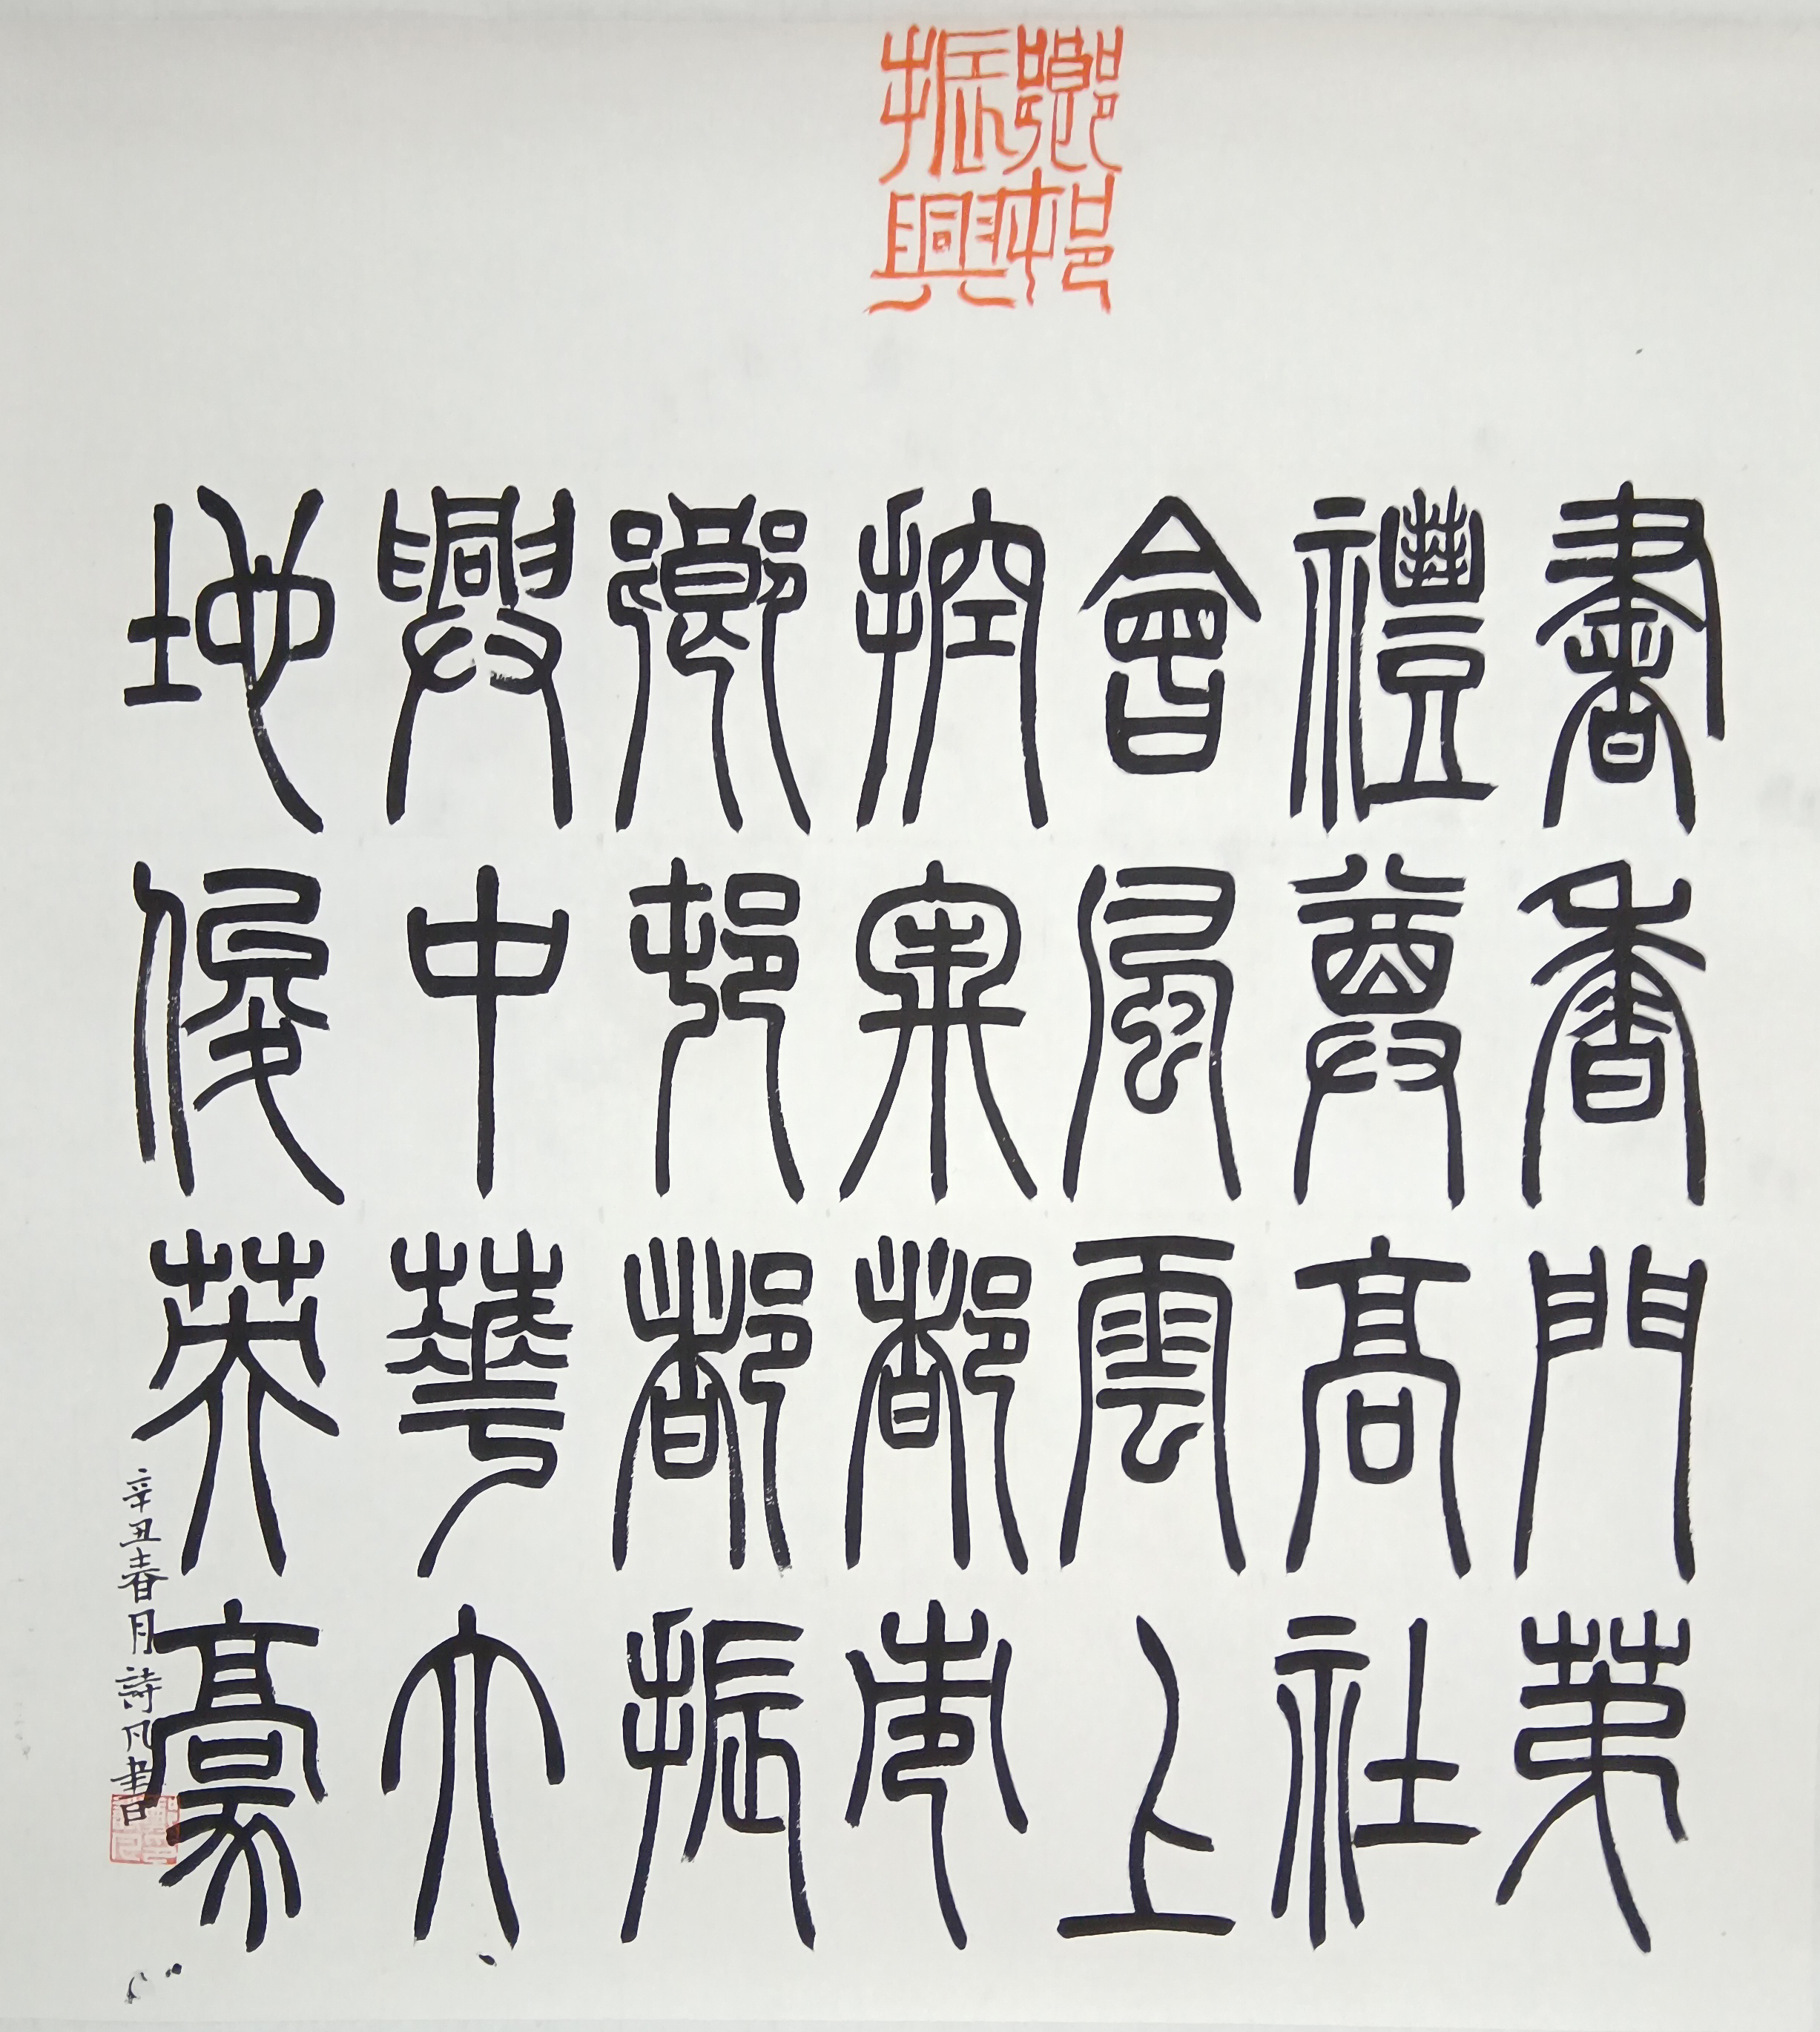 鄉邨
振興
書香門第
禮尊高社
會風雲上
控都市
鄉邨都振
興中華大
地俊英豪
辛丑春月詩凡書